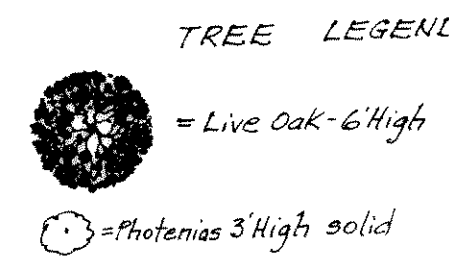 TREE LEGEND
= Live Oak - 6' High
= Photenias 3' High solid